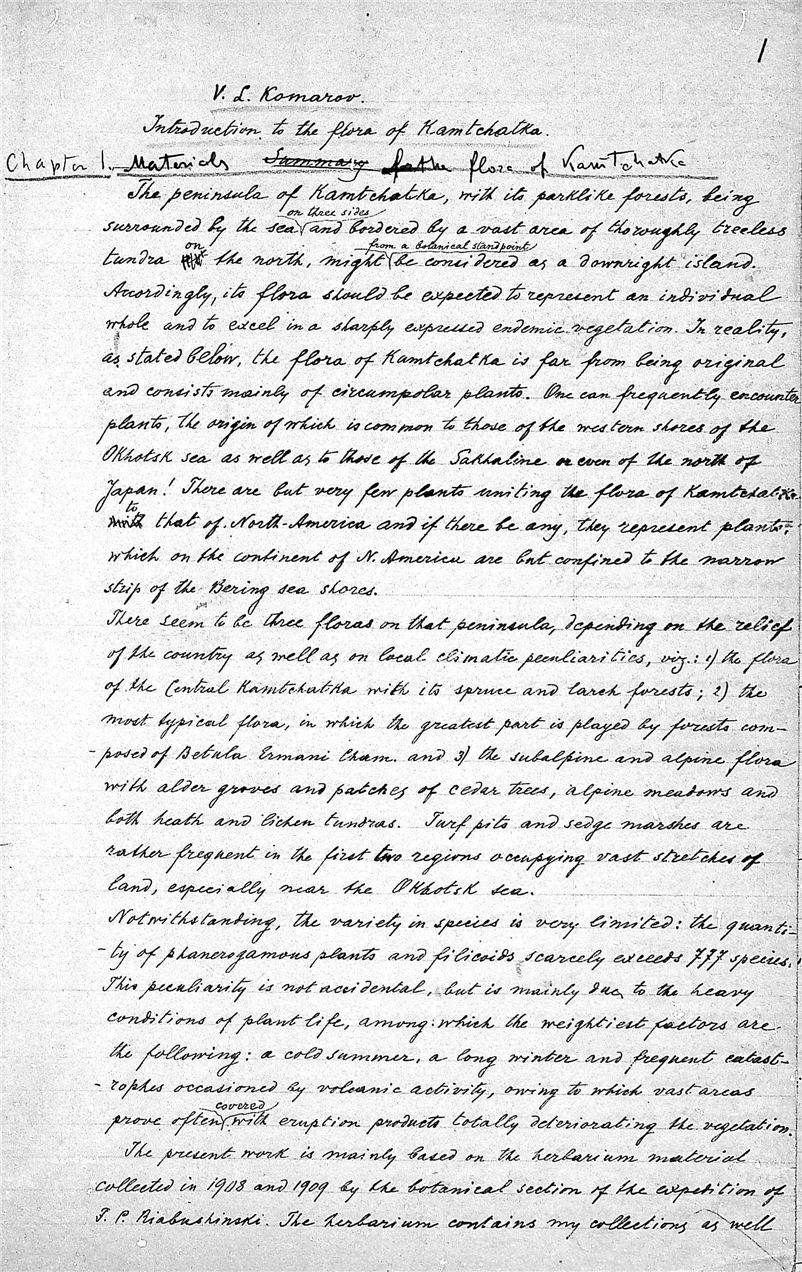 1
V. L. Komarov.
Introduction to the flora of Kamtchatka.
Chapter 1. Materials Summary for the flora of Kamtchatka
The peninsula of Kamtchatka, with its parklike forests, being
on three sides
surrounded by the sea and bordered by a vast area of thoroughly treeless
on from a botanical standpoint
tundra the north, might be considered as a downright island.
Accordingly, its flora should be expected to represent an individual
whole and to excel in a sharply expressed endemic vegetation. In reality,
as stated below, the flora of Kamtchatka is far from being original
and consists mainly of circumpolar plants. One can frequently encounter
plants, the origin of which is common to those of the western shores of the
Okhotsk sea as well as to those of the Sakhaline or even of the north of
Japan! There are but very few plants uniting the flora of Kamtchatka
to
with that of North-America and if there be any, they represent plants,
which on the continent of N. America are but confined to the narrow
strip of the Bering sea shores.
There seem to be three floras on that peninsula, depending on the relief
of the country as well as on local climatic peculiarities, viz.: 1) the flora
of the Central Kamtchatka with its spruce and larch forests; 2) the
most typical flora, in which the greatest part is played by forests com-
-posed of Betula Ermani Cham. and 3) the subalpine and alpine flora
with alder groves and patches of cedar trees, alpine meadows and
both heath and lichen tundras. Turf pits and sedge marshes are
rather frequent in the first two regions occupying vast stretches of
land, especially near the Okhotsk sea.
Notwithstanding, the variety in species is very limited: the quanti-
-ty of phanerogamous plants and filicoids scarcely exceeds 777 species.
This peculiarity is not accidental, but is mainly due to the heavy
conditions of plant life, among which the weightiest factors are
the following: a cold summer, a long winter and frequent catast-
-rophes occasioned by volcanic activity, owing to which vast areas
covered
prove often with eruption products totally deteriorating the vegetation.
The present work is mainly based on the herbarium material
collected in 1908 and 1909 by the botanical section of the expedition of
F. P. Riabushinski. The herbarium contains my collections as well